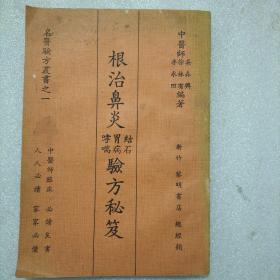 中醫師
吳森興
徐林宥
李永田
編著
新竹　黎明書店　總經銷
根治鼻炎
結石
胃病
哮喘
驗方秘笈
名醫驗方叢書之一
中醫師臨床　必讀良書
人人必讀　家家必備